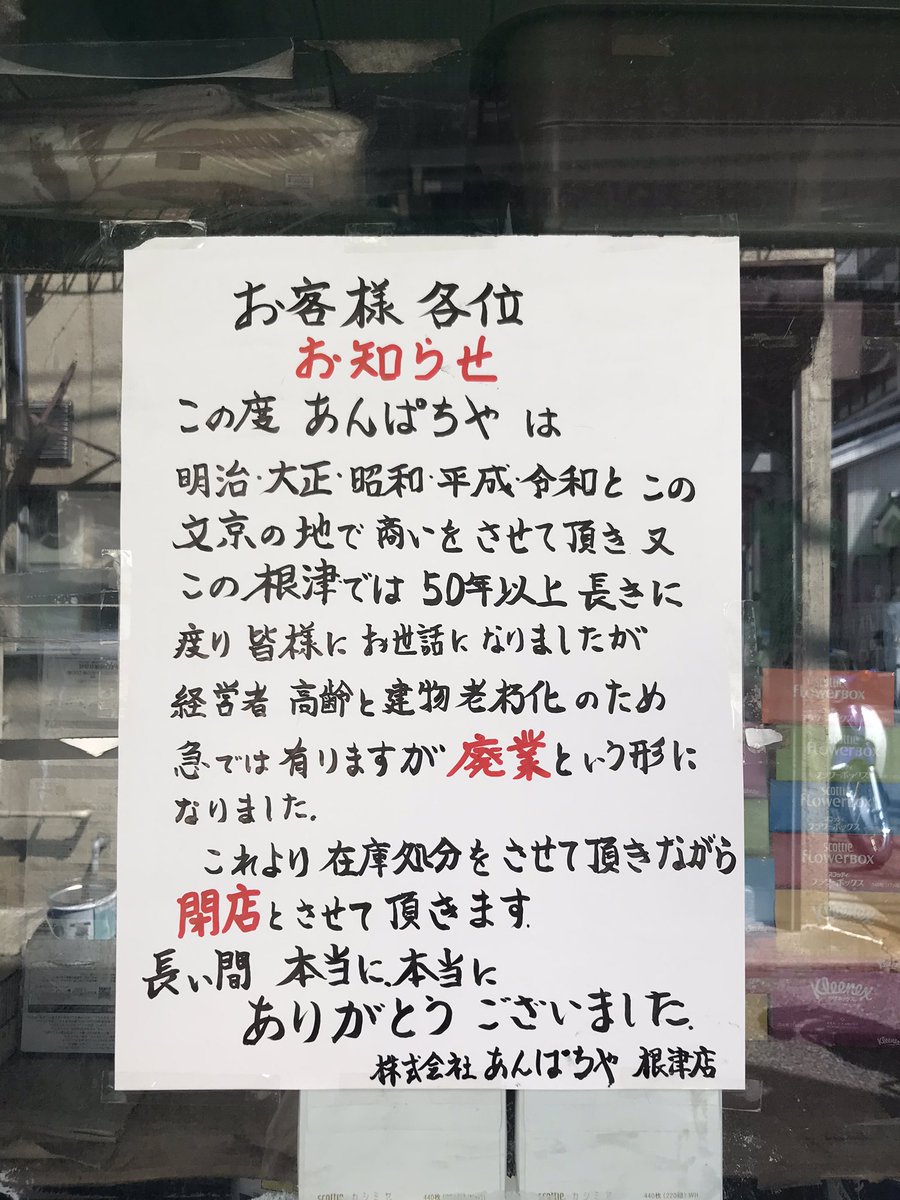 お客様 各位
お知らせ
この度 あんぱちや は
明治・大正・昭和・平成・令和と この
文京の地で 商いを させて頂き 又
この 根津では 50年以上 長きに
渡り 皆様に お世話に なりましたが
経営者 高齢と 建物老朽化 のため
急では 有りますが 廃業という形に
なりました.
これより 在庫処分を させて頂きながら
閉店とさせて 頂きます.
長い間 本当に、本当に
ありがとう ございました.
株式会社 あんぱちや 根津店
scottie
FLOWERBOX
scottie
FLOWERBOX
フラワーボックス
scottie
FLOWERBOX
スコッティ
フラワーボックス
scottie
FLOWERBOX
スコッティ
フラワーボックス
Kleenex
Kleenex
scottie カシミヤ 440枚(220組)
scottie カシミヤ 440枚(220組)